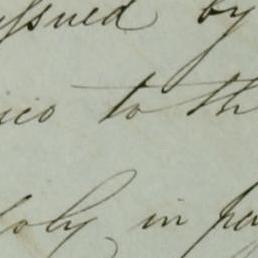 issued by
ico to th
oly in pa